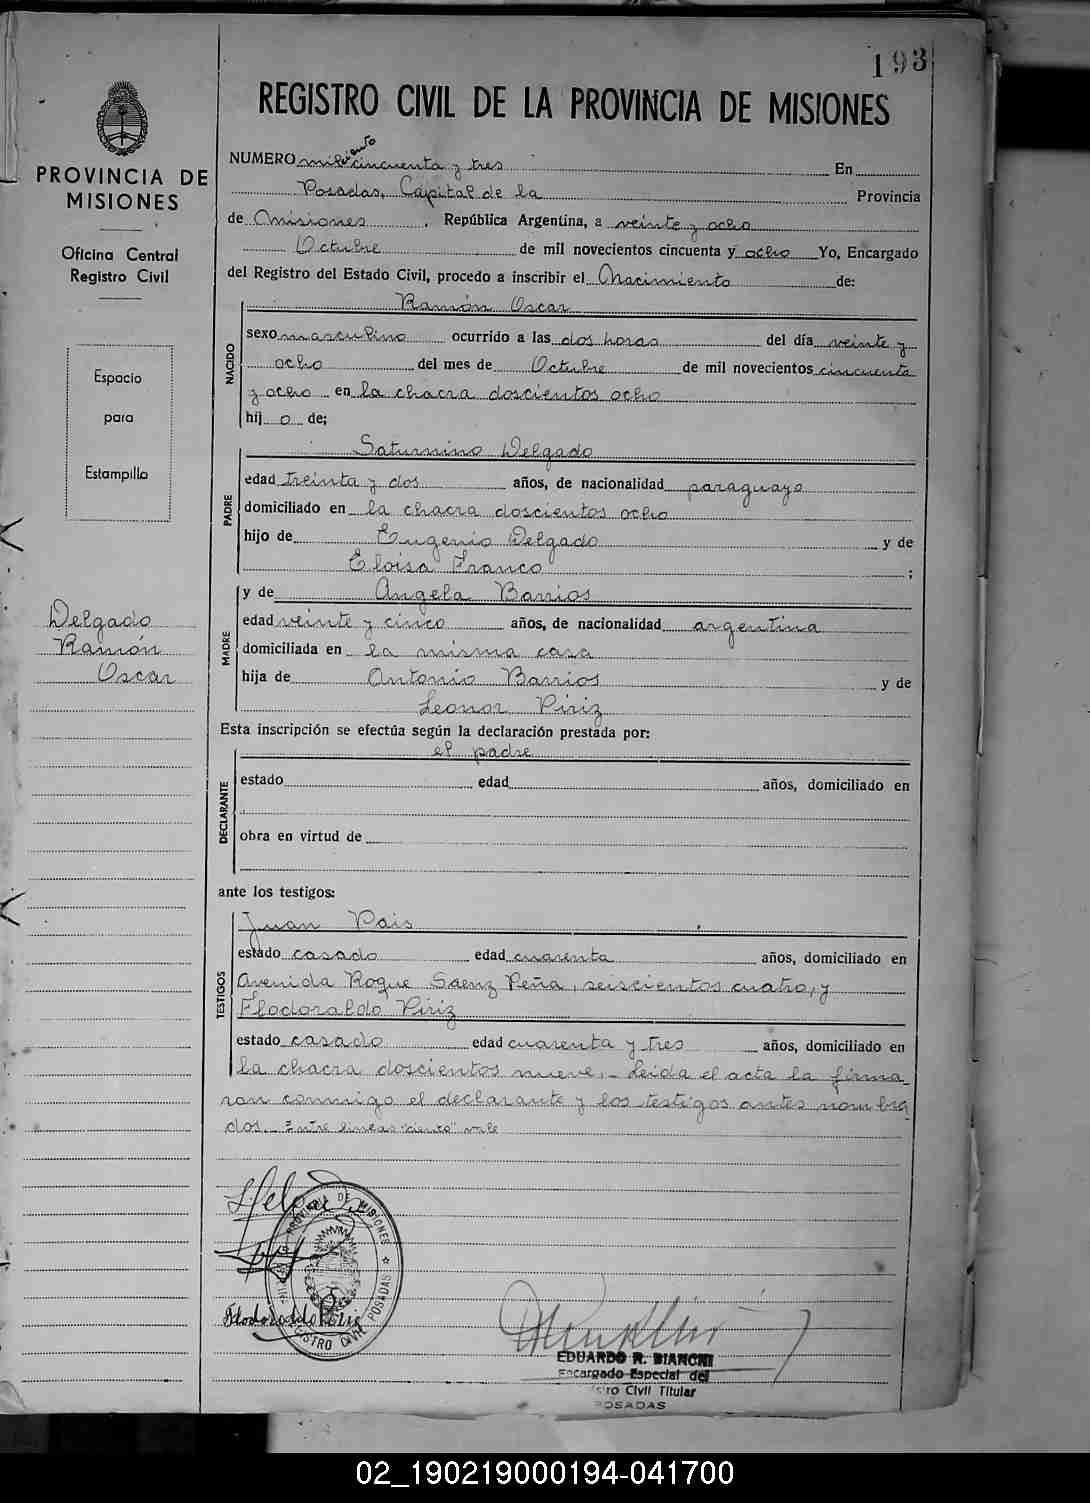 193
REGISTRO CIVIL DE LA PROVINCIA DE MISIONES
PROVINCIA DE
MISIONES
Oficina Central
Registro Civil
Espacio
para
Estampilla
Delgado
Ramón
Oscar
ciento
NUMERO mil cincuenta y tres En
Posadas, Capital de la Provincia
de Misiones, República Argentina, a veinte y ocho
Octubre de mil novecientos cincuenta y ocho Yo, Encargado
del Registro del Estado Civil, procedo a inscribir el Nacimiento de:
NACIDO
Ramón Oscar
sexo masculino ocurrido a las dos horas del día veinte y
ocho del mes de Octubre de mil novecientos cincuenta
y ocho en la chacra doscientos ocho
hij o de;
PADRE
Saturnino Delgado
edad treinta y dos años, de nacionalidad paraguayo
domiciliado en la chacra doscientos ocho
hijo de Eugenio Delgado y de
Eloisa Franco ;
MADRE
y de Angela Barrios
edad veinte y cinco años, de nacionalidad argentina
domiciliada en la misma casa
hija de Antonio Barrios y de
Leonor Piriz
Esta inscripción se efectúa según la declaración prestada por:
DECLARANTE
el padre
estado edad años, domiciliado en
obra en virtud de
ante los testigos:
TESTIGOS
Juan Pais
estado casado edad cuarenta años, domiciliado en
Avenida Roque Saenz Peña, seiscientos cuatro, y
Flodoraldo Piriz
estado casado edad cuarenta y tres años, domiciliado en
la chacra doscientos nueve,- Leida el acta la firma
ron conmigo el declarante y los testigos antes nombra
dos.- Entre lineas "ciento" vale
PROVINCIA DE MISIONES
REGISTRO CIVIL POSADAS
Flodoraldo Piriz
EDUARDO R. BIANCHI
Encargado Especial del
Civil Titular
POSADAS
02_190219000194-041700